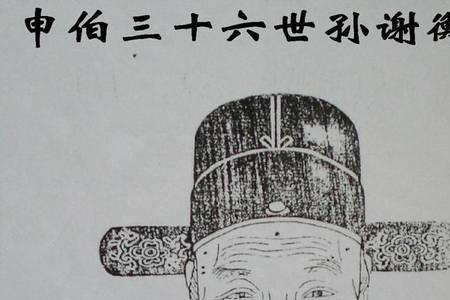 申伯三十六世孙谢衡